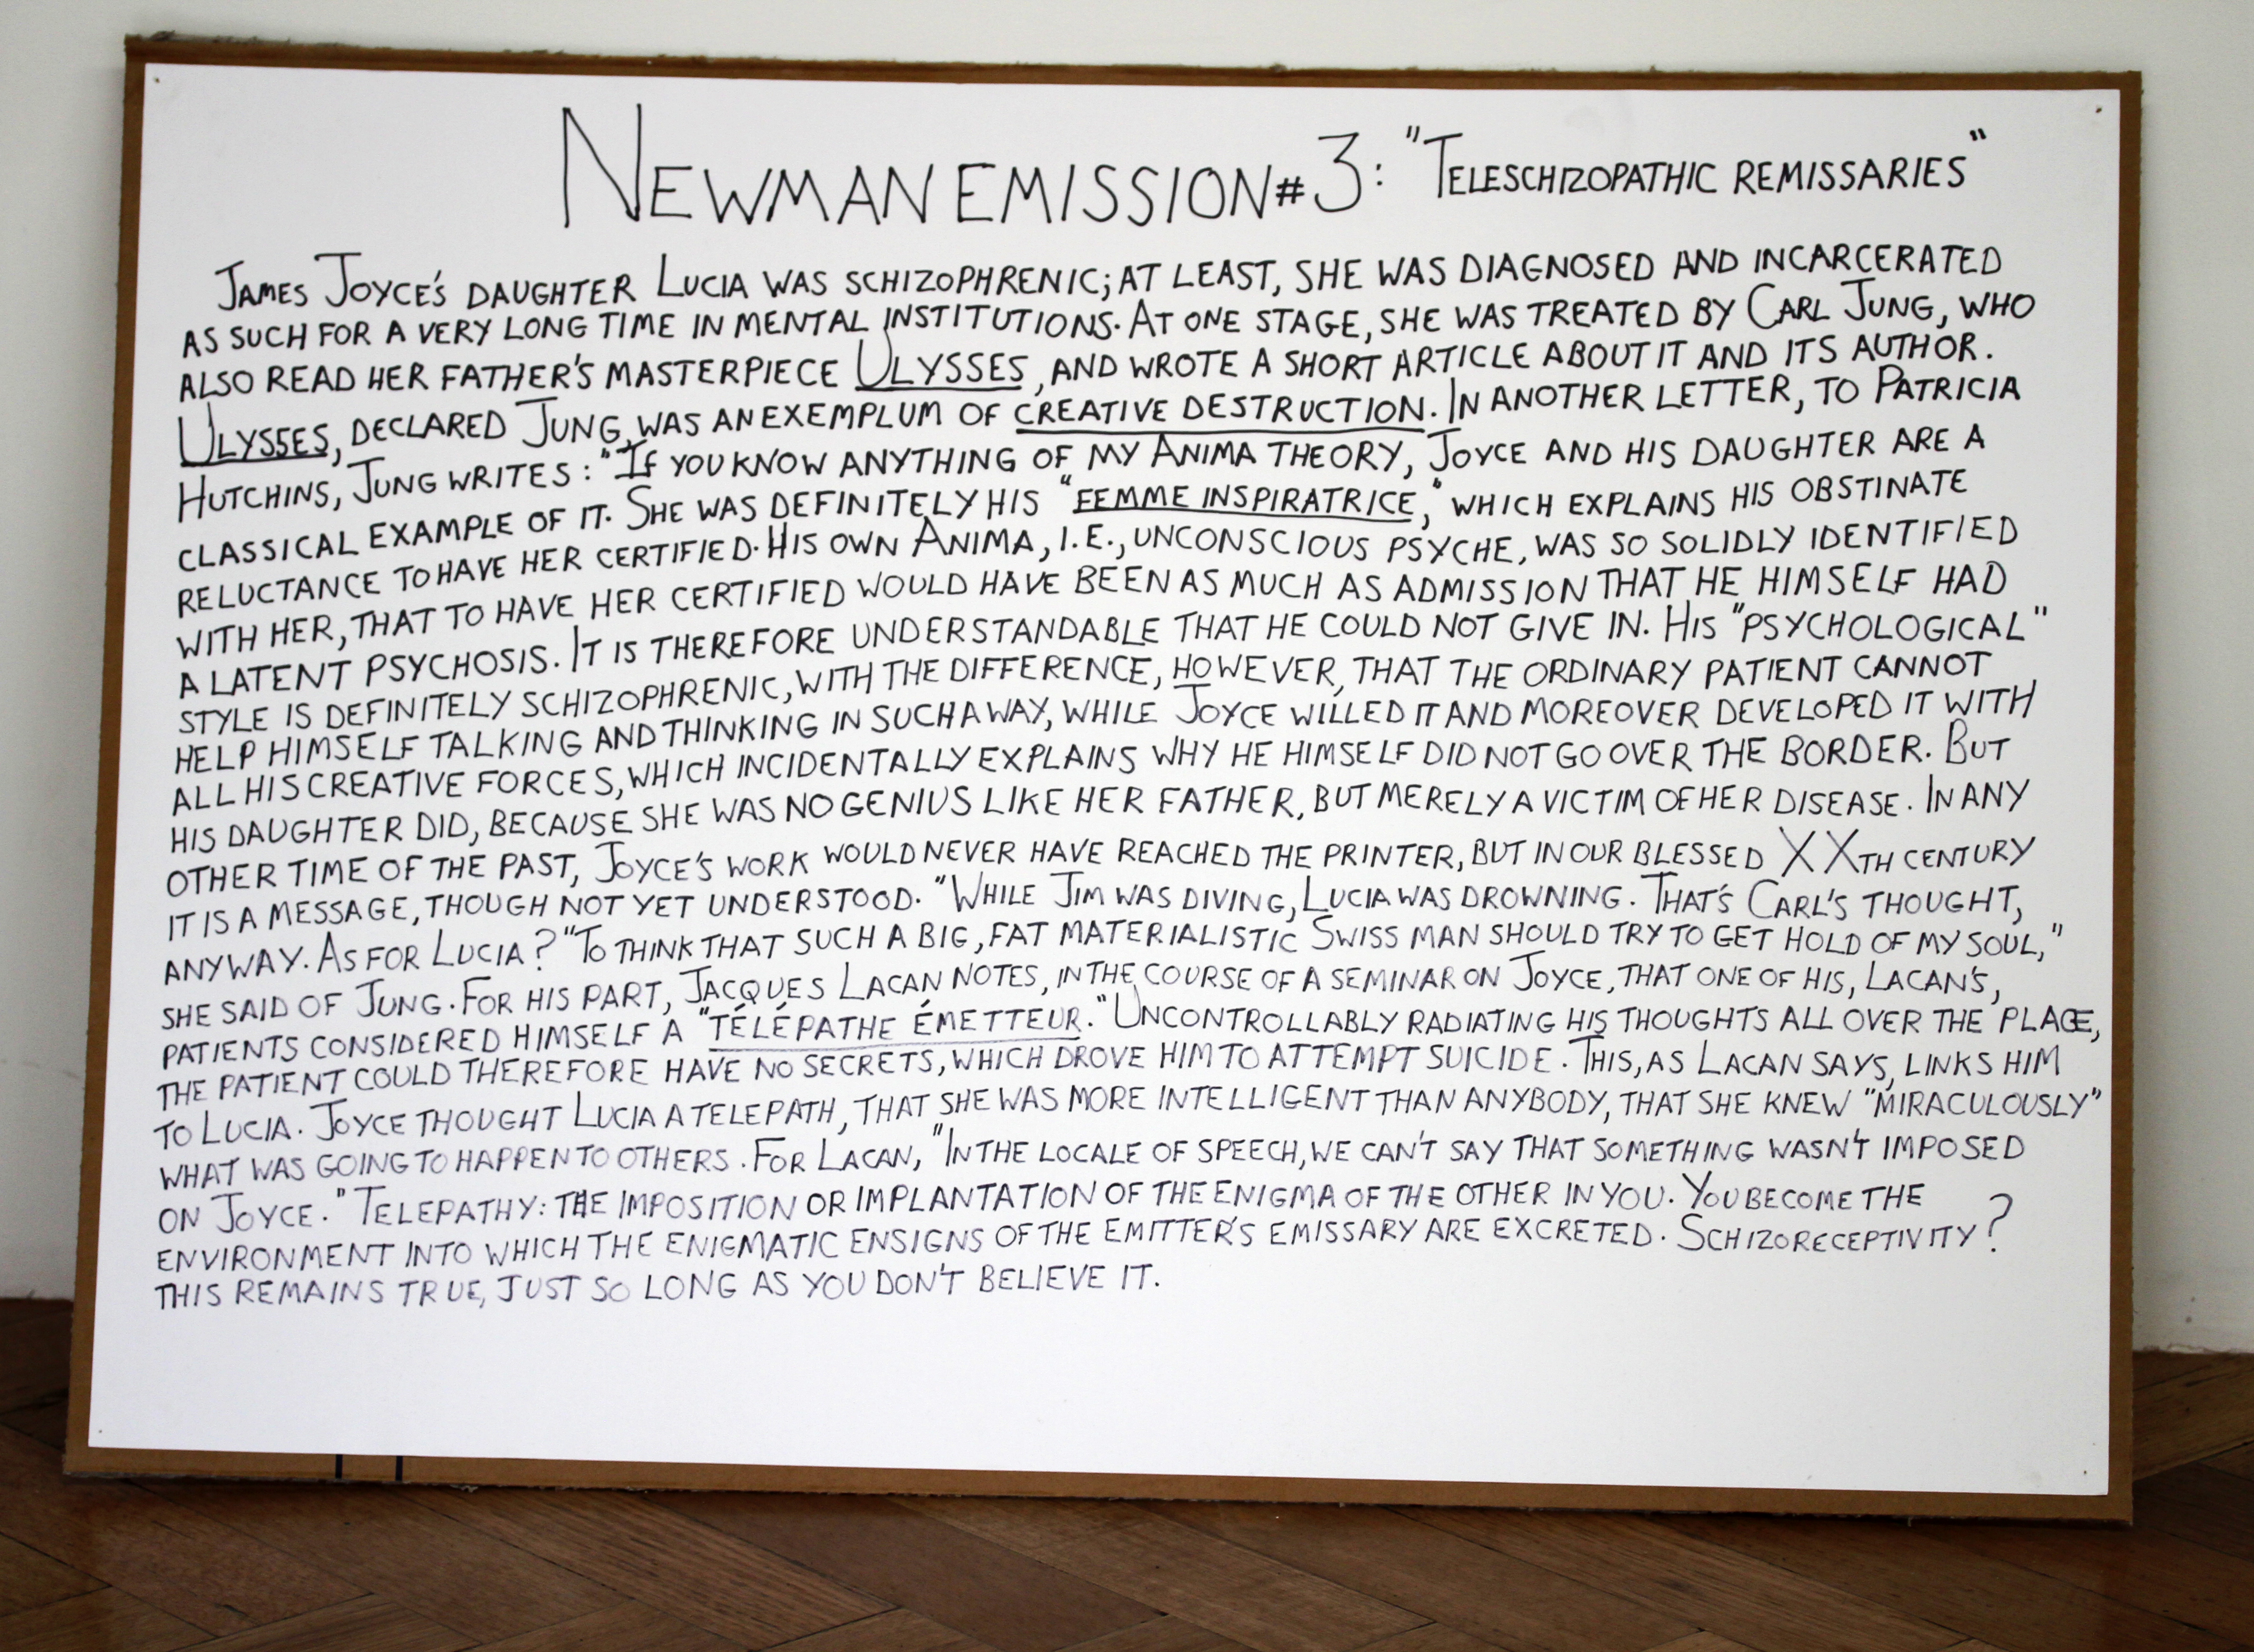 NEWMAN EMISSION #3: "TELESCHIZOPATHIC REMISSARIES"
JAMES JOYCE'S DAUGHTER LUCIA WAS SCHIZOPHRENIC; AT LEAST, SHE WAS DIAGNOSED AND INCARCERATED
AS SUCH FOR A VERY LONG TIME IN MENTAL INSTITUTIONS. AT ONE STAGE, SHE WAS TREATED BY CARL JUNG, WHO
ALSO READ HER FATHER'S MASTERPIECE ULYSSES, AND WROTE A SHORT ARTICLE ABOUT IT AND ITS AUTHOR.
ULYSSES, DECLARED JUNG, WAS AN EXEMPLUM OF CREATIVE DESTRUCTION. IN ANOTHER LETTER, TO PATRICIA
HUTCHINS, JUNG WRITES: "IF YOU KNOW ANYTHING OF MY ANIMA THEORY, JOYCE AND HIS DAUGHTER ARE A
CLASSICAL EXAMPLE OF IT. SHE WAS DEFINITELY HIS "FEMME INSPIRATRICE," WHICH EXPLAINS HIS OBSTINATE
RELUCTANCE TO HAVE HER CERTIFIED. HIS OWN ANIMA, I.E., UNCONSCIOUS PSYCHE, WAS SO SOLIDLY IDENTIFIED
WITH HER, THAT TO HAVE HER CERTIFIED WOULD HAVE BEEN AS MUCH AS ADMISSION THAT HE HIMSELF HAD
A LATENT PSYCHOSIS. IT IS THEREFORE UNDERSTANDABLE THAT HE COULD NOT GIVE IN. HIS "PSYCHOLOGICAL"
STYLE IS DEFINITELY SCHIZOPHRENIC, WITH THE DIFFERENCE, HOWEVER, THAT THE ORDINARY PATIENT CANNOT
HELP HIMSELF TALKING AND THINKING IN SUCH A WAY, WHILE JOYCE WILLED IT AND MOREOVER DEVELOPED IT WITH
ALL HIS CREATIVE FORCES, WHICH INCIDENTALLY EXPLAINS WHY HE HIMSELF DID NOT GO OVER THE BORDER. BUT
HIS DAUGHTER DID, BECAUSE SHE WAS NO GENIUS LIKE HER FATHER, BUT MERELY A VICTIM OF HER DISEASE. IN ANY
OTHER TIME OF THE PAST, JOYCE'S WORK WOULD NEVER HAVE REACHED THE PRINTER, BUT IN OUR BLESSED XXTH CENTURY
IT IS A MESSAGE, THOUGH NOT YET UNDERSTOOD. "WHILE JIM WAS DIVING, LUCIA WAS DROWNING. THAT'S CARL'S THOUGHT,
ANYWAY. AS FOR LUCIA? "TO THINK THAT SUCH A BIG, FAT MATERIALISTIC SWISS MAN SHOULD TRY TO GET HOLD OF MY SOUL,"
SHE SAID OF JUNG. FOR HIS PART, JACQUES LACAN NOTES, IN THE COURSE OF A SEMINAR ON JOYCE, THAT ONE OF HIS, LACAN'S,
PATIENTS CONSIDERED HIMSELF A "TÉLÉPATHE ÉMETTEUR." UNCONTROLLABLY RADIATING HIS THOUGHTS ALL OVER THE PLACE,
THE PATIENT COULD THEREFORE HAVE NO SECRETS, WHICH DROVE HIM TO ATTEMPT SUICIDE. THIS, AS LACAN SAYS, LINKS HIM
TO LUCIA. JOYCE THOUGHT LUCIA A TELEPATH, THAT SHE WAS MORE INTELLIGENT THAN ANYBODY, THAT SHE KNEW "MIRACULOUSLY"
WHAT WAS GOING TO HAPPEN TO OTHERS. FOR LACAN, "IN THE LOCALE OF SPEECH, WE CAN'T SAY THAT SOMETHING WASN'T IMPOSED
ON JOYCE." TELEPATHY: THE IMPOSITION OR IMPLANTATION OF THE ENIGMA OF THE OTHER IN YOU. YOU BECOME THE
ENVIRONMENT INTO WHICH THE ENIGMATIC ENSIGNS OF THE EMITTER'S EMISSARY ARE EXCRETED. SCHIZORECEPTIVITY?
THIS REMAINS TRUE, JUST SO LONG AS YOU DON'T BELIEVE IT.